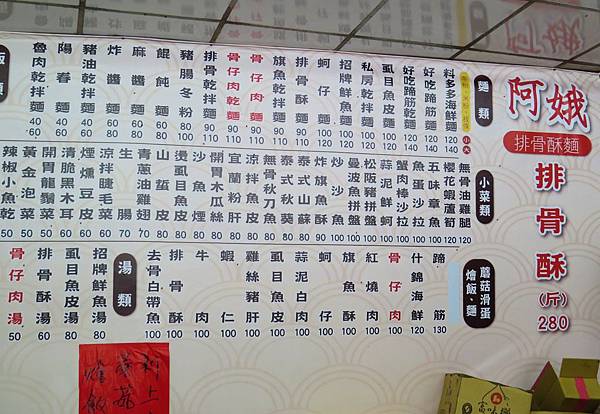 阿娥
排骨酥麵
排骨酥
(斤)
280
麵類
料多多海鮮麵 120 140
好吃蹄筋麵 120 140
好吃蹄筋乾麵 120 140
虱目魚皮麵 100 120
私房乾拌麵 100 120
招牌鮮魚麵 100 120
蚵仔麵 100 120
旗魚乾拌麵 90 110
骨仔肉麵 90 110
骨仔肉乾麵 90 110
排骨乾拌麵 90 110
豬腸冬粉 90 100
餛飩麵 60 80
麻醬麵 60 80
炸醬麵 60 80
豬油乾拌麵 40 60
陽春麵 40 60
魯肉乾拌麵 40 60
飯類
小菜類
無骨油雞腿 120
櫻花蝦蘆筍 120
五味章魚 100
魚蛋沙拉 100
蟹肉棒沙拉 100
蒜泥鮮蚵 100
松阪豬拼盤 100
曼波魚拼盤 100
炒沙魚 100
炸旗魚酥 100
泰式山蘇
泰式秋葵
無骨秋刀魚
涼拌魚皮
宜蘭粉肝
開胃木瓜絲
沙魚煙
燙虱目魚皮
山蜇皮
青蔥油雞翅
生腸
涼拌睫毛菜 50
煙燻豆皮 50
清脆黑木耳 50
開胃龍鬚菜 50
黃金泡菜 50
辣椒小魚乾 50
蘑菇滑蛋
燴飯、麵
蹄筋 130
什錦海鮮 120
骨仔肉 100
紅燒肉 100
旗魚 100
蚵仔 100
蒜泥白肉 100
虱目魚皮 100
雞絲豬肝 100
蝦仁 100
牛肉 100
排骨酥 100
去骨白帶魚 100
湯類
招牌鮮魚湯 80
虱目魚皮湯 80
排骨酥湯 60
骨仔肉湯 50
新上
蘑菇
燴飯